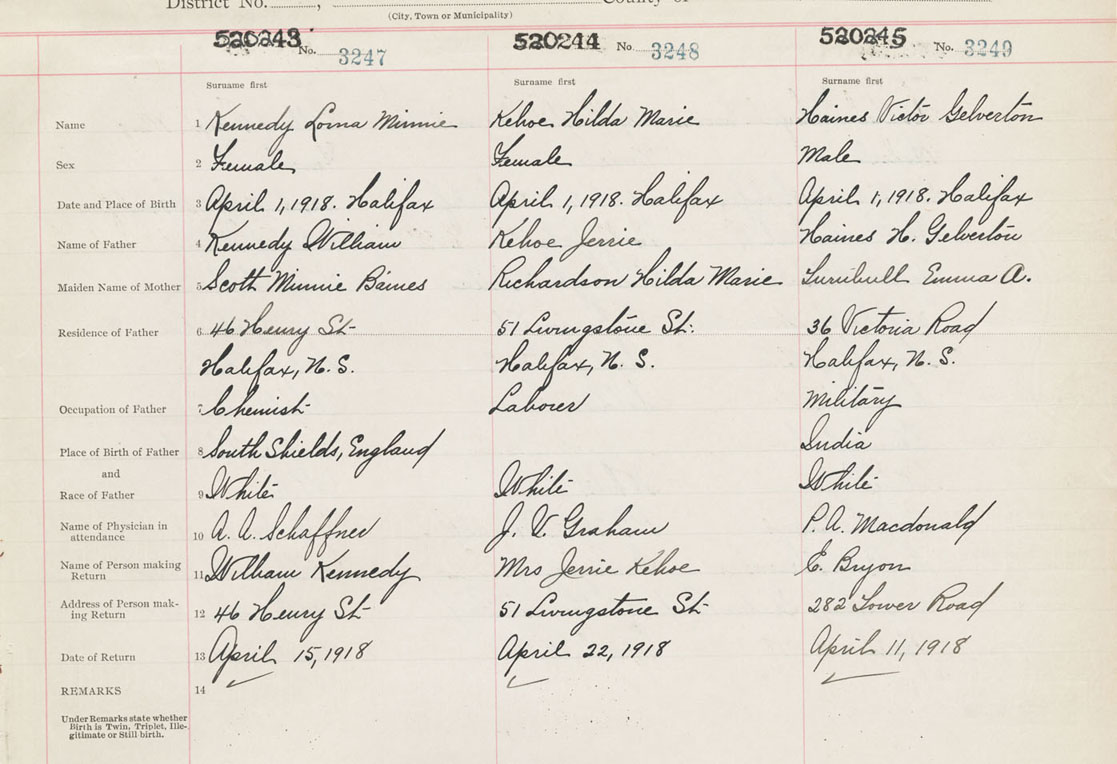 District No. , County of
(City, Town or Municipality)
520243 No. 3247 520244 No. 3248 520245 No. 3249
Surname first Surname first Surname first
Name 1 Kennedy Lorna Minnie Kehoe Hilda Marie Haines Victor Gelverton
Sex 2 Female Female Male
Date and Place of Birth 3 April 1, 1918. Halifax April 1, 1918. Halifax April 1, 1918. Halifax
Name of Father 4 Kennedy William Kehoe Jerrie Haines H. Gelverton
Maiden Name of Mother 5 Scott Minnie Baines Richardson Hilda Marie Turnbull Emma A.
Residence of Father 6 46 Henry St 51 Livingstone St. 36 Victoria Road
Halifax, N. S. Halifax, N. S. Halifax, N. S.
Occupation of Father 7 Chemist Laborer Military
Place of Birth of Father 8 South Shields, England India
and
Race of Father 9 White White White
Name of Physician in
attendance 10 A. A. Schaffner J. V. Graham P. A. Macdonald
Name of Person making
Return 11 William Kennedy Mrs Jerrie Kehoe E. Bryon
Address of Person mak-
ing Return 12 46 Henry St 51 Livingstone St. 282 Tower Road
Date of Return 13 April 15, 1918 April 22, 1918 April 11, 1918
REMARKS 14
Under Remarks state whether
Birth is Twin, Triplet, Ille-
gitimate or Still birth.